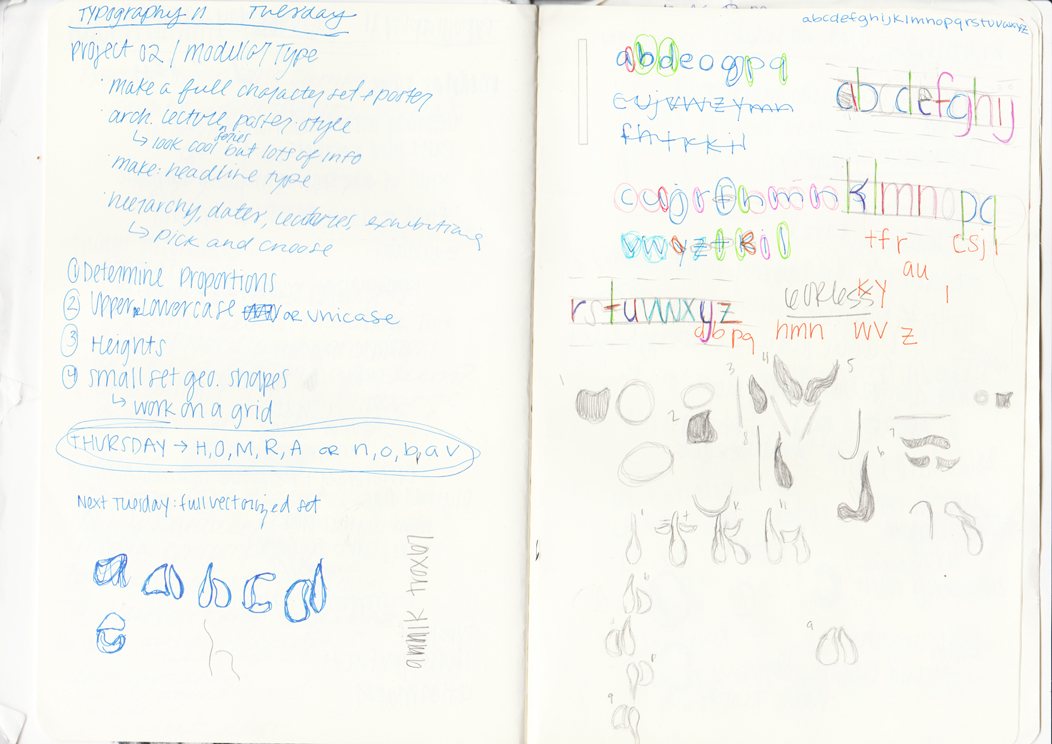 Typography II Tuesday
Project 02 / Modular Type
· make a full character set + poster
· arch. lecture series poster style
↳ look cool but lots of info
· make: headline type
· hierarchy, dates, lectures, exhibitions
↳ pick and choose
① Determine Proportions
② Upper + Lowercase or unicase
③ Heights
④ small set geo. shapes
↳ work on a grid
THURSDAY → H, O, M, R, A or n, o, b, a v
Next Tuesday: full vectorized set
a a b c d
e
h
annik troxel
abcdefghijklmnopqrstuvwxyz
abdeogpq
cujrvwzymn
abcdefghij
cujrfhnmin
klmnopq
vwvyztkil
tfr csji
au
rstuvwxyz
kY l
abpq hmn wv z
1 2 3 4 5
8 6 7